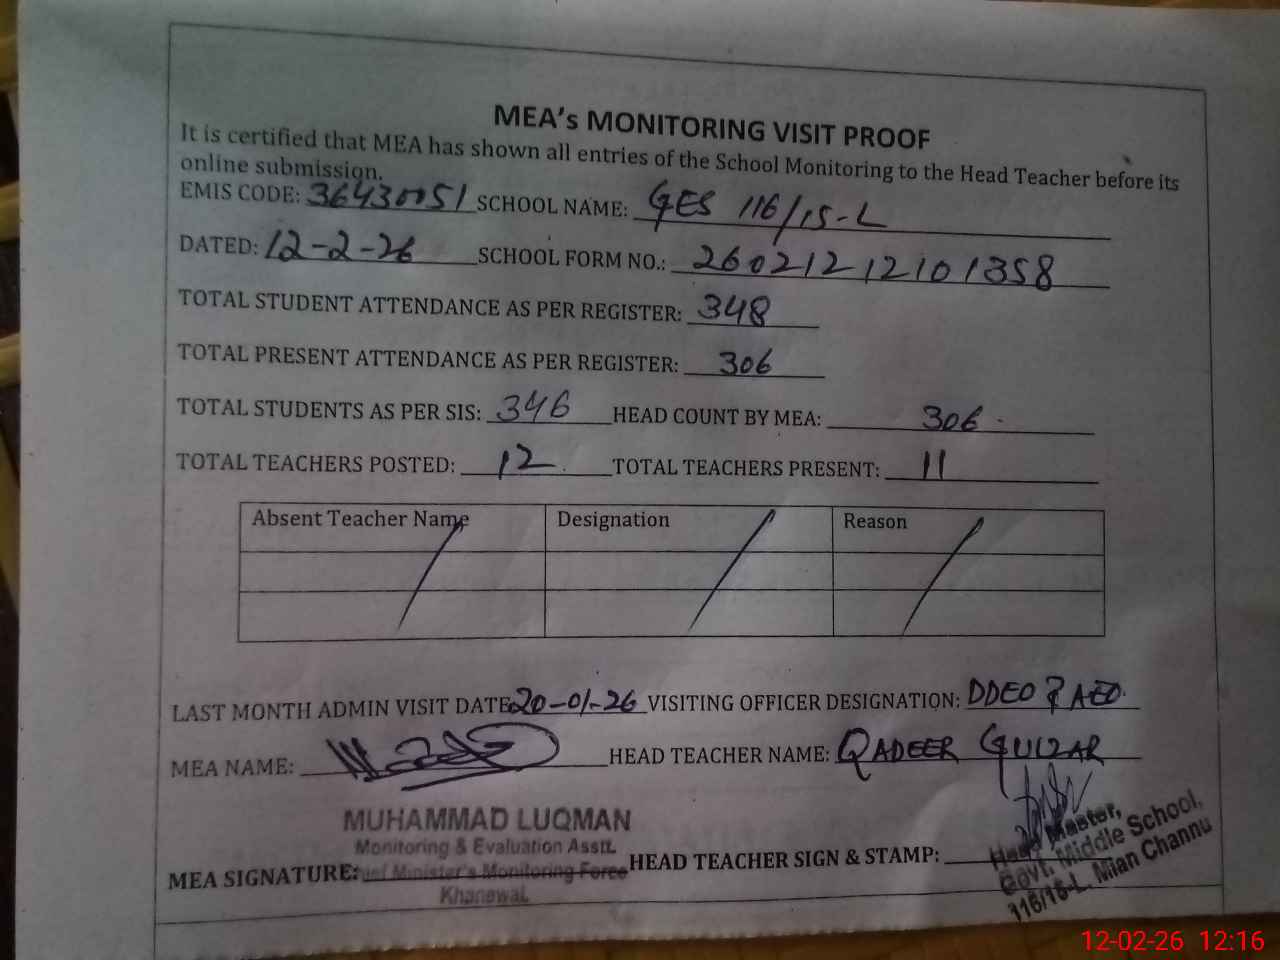 MEA's MONITORING VISIT PROOF
It is certified that MEA has shown all entries of the School Monitoring to the Head Teacher before its
online submission.
EMIS CODE: 36430051 SCHOOL NAME: GES 116/15-L
DATED: 12-2-26 SCHOOL FORM NO.: 26021212101358
TOTAL STUDENT ATTENDANCE AS PER REGISTER: 348
TOTAL PRESENT ATTENDANCE AS PER REGISTER: 306
TOTAL STUDENTS AS PER SIS: 346 HEAD COUNT BY MEA: 306
TOTAL TEACHERS POSTED: 12 TOTAL TEACHERS PRESENT: 11
Absent Teacher Name Designation Reason
LAST MONTH ADMIN VISIT DATE 20-01-26 VISITING OFFICER DESIGNATION: DDEO & AEO
MEA NAME: HEAD TEACHER NAME: QADEER GULZAR
MUHAMMAD LUQMAN
Monitoring & Evaluation Asstt.
MEA SIGNATURE: Chief Minister's Monitoring Force HEAD TEACHER SIGN & STAMP:
Khanewal.
Head Master,
Govt. Middle School,
116/15-L. Mian Channu
12-02-26 12:16